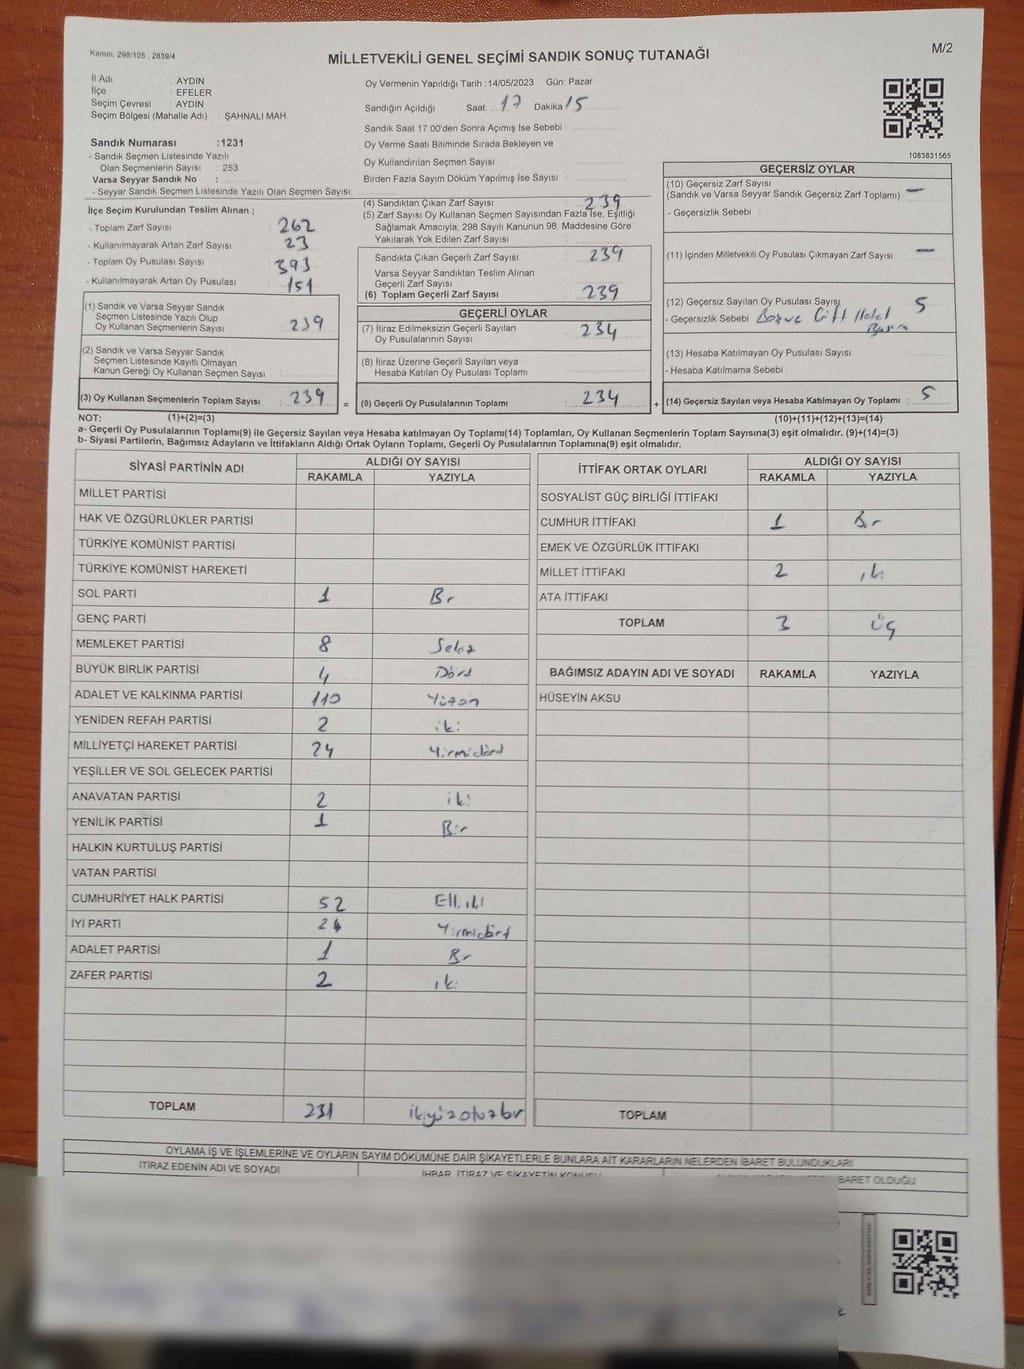 Kanun. 298/105 . 2839/4
M/2
MİLLETVEKİLİ GENEL SEÇİMİ SANDIK SONUÇ TUTANAĞI
İl Adı : AYDIN
İlçe : EFELER
Seçim Çevresi : AYDIN
Seçim Bölgesi (Mahalle Adı) : ŞAHNALI MAH.
Oy Vermenin Yapıldığı Tarih :14/05/2023 Gün: Pazar
Sandığın Açıldığı Saat 17 Dakika 15
Sandık Saat 17.00'den Sonra Açımış İse Sebebi
Oy Verme Saati Bitiminde Sırada Bekleyen ve
Oy Kullandırılan Seçmen Sayısı
Birden Fazla Sayım Döküm Yapılmış İse Sayısı
Sandık Numarası :1231
- Sandık Seçmen Listesinde Yazılı
Olan Seçmenlerin Sayısı : 253
Varsa Seyyar Sandık No :
- Seyyar Sandık Seçmen Listesinde Yazılı Olan Seçmen Sayısı:
1083831565
İlçe Seçim Kurulundan Teslim Alınan ;
- Toplam Zarf Sayısı 262
- Kullanılmayarak Artan Zarf Sayısı 23
- Toplam Oy Pusulası Sayısı 393
- Kullanılmayarak Artan Oy Pusulası 151
(1) Sandık ve Varsa Seyyar Sandık
Seçmen Listesinde Yazılı Olup
Oy Kullanan Seçmenlerin Sayısı 239
(2) Sandık ve Varsa Seyyar Sandık
Seçmen Listesinde Kayıtlı Olmayan
Kanun Gereği Oy Kullanan Seçmen Sayısı
(3) Oy Kullanan Seçmenlerin Toplam Sayısı : 239 =
(4) Sandıktan Çıkan Zarf Sayısı 239
(5) Zarf Sayısı Oy Kullanan Seçmen Sayısından Fazla İse, Eşitliği
Sağlamak Amacıyla; 298 Sayılı Kanunun 98. Maddesine Göre
Yakılarak Yok Edilen Zarf Sayısı
Sandıkta Çıkan Geçerli Zarf Sayısı 239
Varsa Seyyar Sandıktan Teslim Alınan
Geçerli Zarf Sayısı
(6) Toplam Geçerli Zarf Sayısı 239
GEÇERLİ OYLAR
(7) İtiraz Edilmeksizin Geçerli Sayılan
Oy Pusulalarının Sayısı 234
(8) İtiraz Üzerine Geçerli Sayılan veya
Hesaba Katılan Oy Pusulası Toplamı
(9) Geçerli Oy Pusulalarının Toplamı 234 +
GEÇERSİZ OYLAR
(10) Geçersiz Zarf Sayısı
(Sandık ve Varsa Seyyar Sandık Geçersiz Zarf Toplamı) —
- Geçersizlik Sebebi :
(11) İçinden Milletvekili Oy Pusulası Çıkmayan Zarf Sayısı —
(12) Geçersiz Sayılan Oy Pusulası Sayısı 5
- Geçersizlik Sebebi Çift
(13) Hesaba Katılmayan Oy Pusulası Sayısı
- Hesaba Katılmama Sebebi
(14) Geçersiz Sayılan veya Hesaba Katılmayan Oy Toplamı : 5
NOT: (1)+(2)=(3) (10)+(11)+(12)+(13)=(14)
a- Geçerli Oy Pusulalarının Toplamı(9) ile Geçersiz Sayılan veya Hesaba katılmayan Oy Toplamı(14) Toplamları, Oy Kullanan Seçmenlerin Toplam Sayısına(3) eşit olmalıdır. (9)+(14)=(3)
b- Siyasi Partilerin, Bağımsız Adayların ve İttifakların Aldığı Ortak Oyların Toplamı, Geçerli Oy Pusulalarının Toplamına(9) eşit olmalıdır.
SİYASİ PARTİNİN ADI ALDIĞI OY SAYISI
RAKAMLA YAZIYLA
MİLLET PARTİSİ
HAK VE ÖZGÜRLÜKLER PARTİSİ
TÜRKİYE KOMÜNİST PARTİSİ
TÜRKİYE KOMÜNİST HAREKETİ
SOL PARTİ 1 Bir
GENÇ PARTİ
MEMLEKET PARTİSİ 8 Sekiz
BÜYÜK BİRLİK PARTİSİ 4 Dört
ADALET VE KALKINMA PARTİSİ 110 Yüzon
YENİDEN REFAH PARTİSİ 2 iki
MİLLİYETÇİ HAREKET PARTİSİ 24 Yirmidört
YEŞİLLER VE SOL GELECEK PARTİSİ
ANAVATAN PARTİSİ 2 iki
YENİLİK PARTİSİ 1 Bir
HALKIN KURTULUŞ PARTİSİ
VATAN PARTİSİ
CUMHURİYET HALK PARTİSİ 52 Elliiki
İYİ PARTİ 24 Yirmidört
ADALET PARTİSİ 1 Bir
ZAFER PARTİSİ 2 iki
TOPLAM 231 ikiyüzotuzbir
İTTİFAK ORTAK OYLARI ALDIĞI OY SAYISI
RAKAMLA YAZIYLA
SOSYALİST GÜÇ BİRLİĞİ İTTİFAKI
CUMHUR İTTİFAKI 1 Bir
EMEK VE ÖZGÜRLÜK İTTİFAKI
MİLLET İTTİFAKI 2 iki
ATA İTTİFAKI
TOPLAM 3 Üç
BAĞIMSIZ ADAYIN ADI VE SOYADI RAKAMLA YAZIYLA
HÜSEYİN AKSU
TOPLAM
OYLAMA İŞ VE İŞLEMLERİNE VE OYLARIN SAYIM DÖKÜMÜNE DAİR ŞİKAYETLERLE BUNLARA AİT KARARLARIN NELERDEN İBARET BULUNDUKLARI
İTİRAZ EDENİN ADI VE SOYADI
İHBAR, İTİRAZ VE ŞİKAYETİN KONUSU
İBARET OLDUĞU